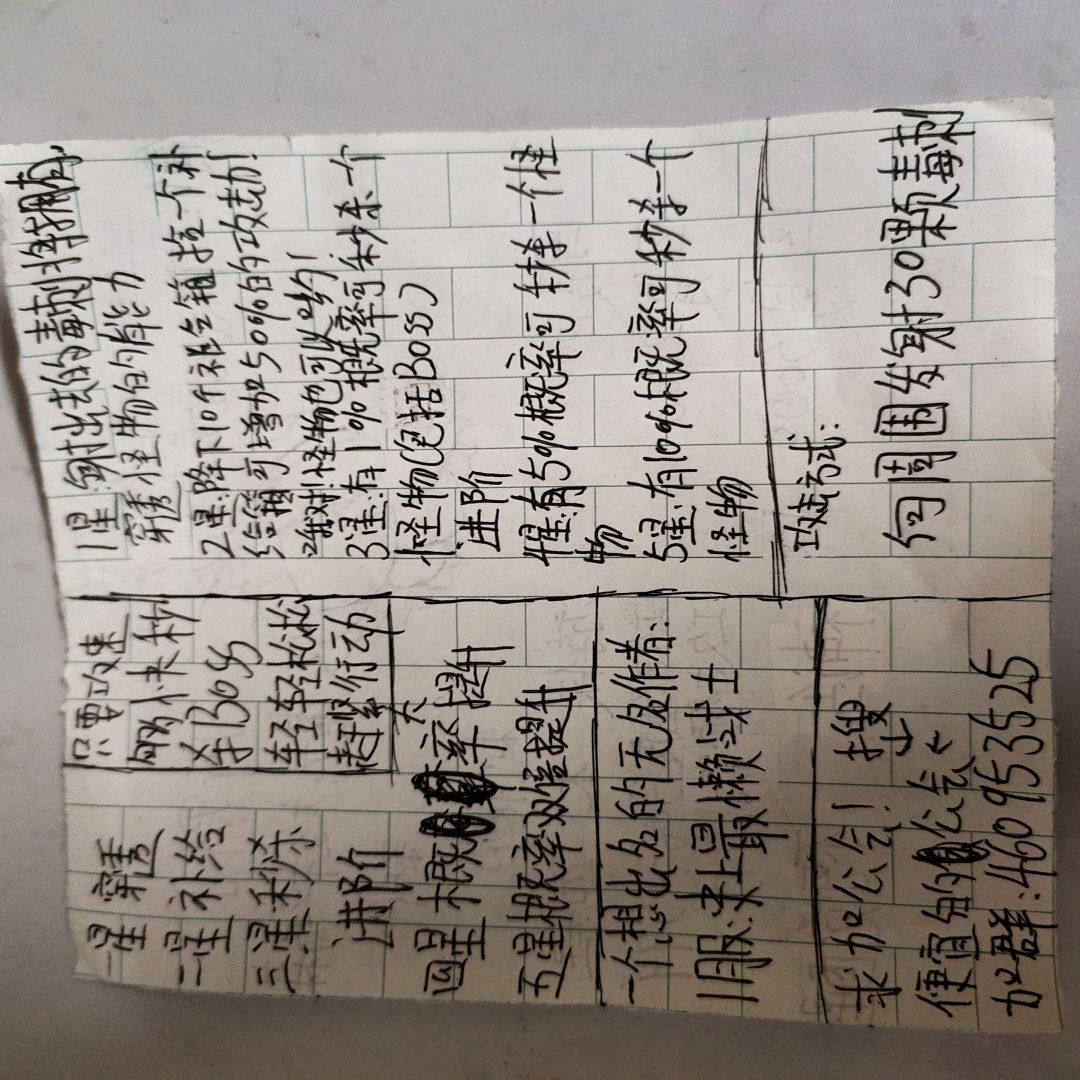 一星 穿透
二星 补给
三星 秒杀
进阶
四星 概率提升
大
五星概率双倍提升
只要攻速
够快秒
杀BOSS
轻轻松松
赶紧行动
一个想出名的无名作者:
1服:史上最懒战士
求加公会!搜
↓
便宜的公会←
加群:460953525
1星:射出去的毒刺将拥有
穿透怪物的能力
2星:降下10个补给箱 捡一个补
给箱可增加50%的攻击力!
对怪物也可以哟!
3星:有1%概率可秒杀一个
怪物(包括Boss)
进阶
4星:有5%概率可秒杀一个怪
物
5星:有10%概率可秒杀一个
怪物
攻击方式:
向周围发射30颗毒刺